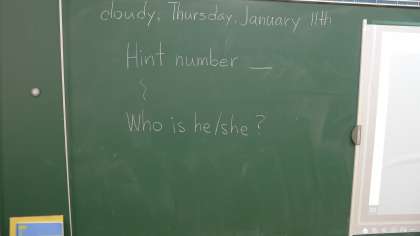 cloudy, Thursday, January 11th
Hint number __
Who is he/she?